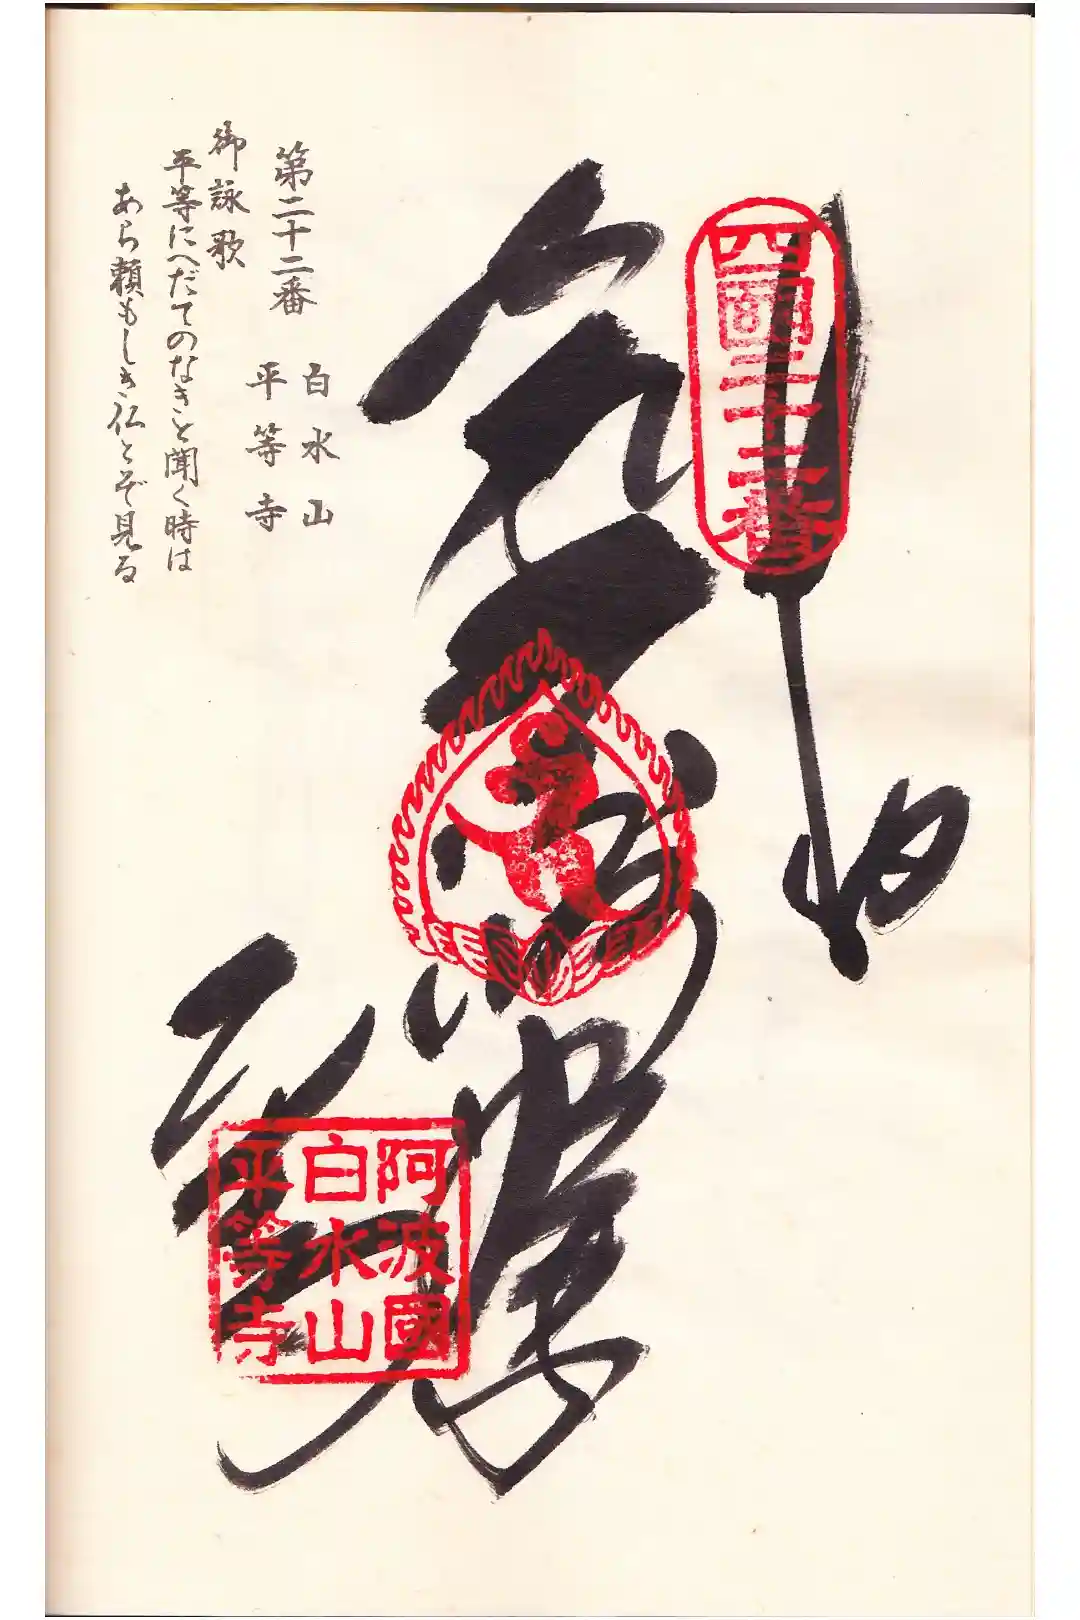 四國二十二番
奉納
阿波國
白水山
平等寺
第二十二番
白水山
平等寺
御詠歌
平等にへだてのなきと聞く時は
あら頼もしき仏とぞ見る